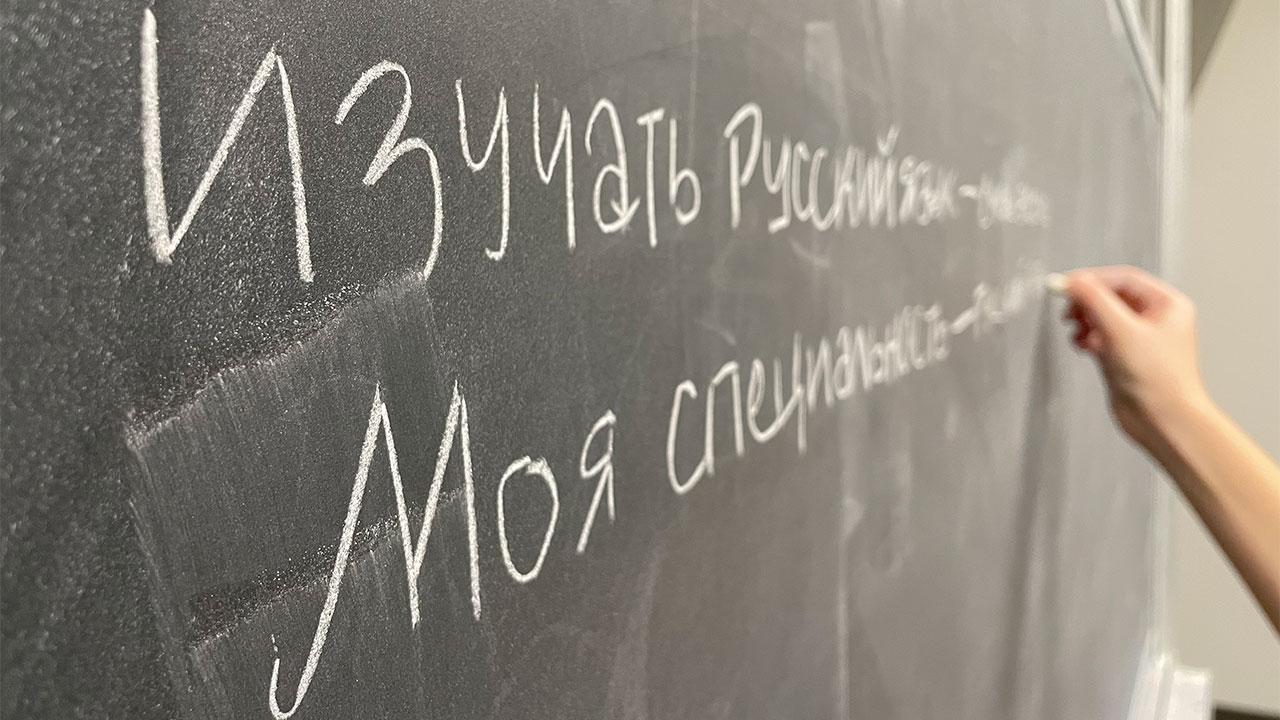 Изучать Русский язык -
Моя специальность -